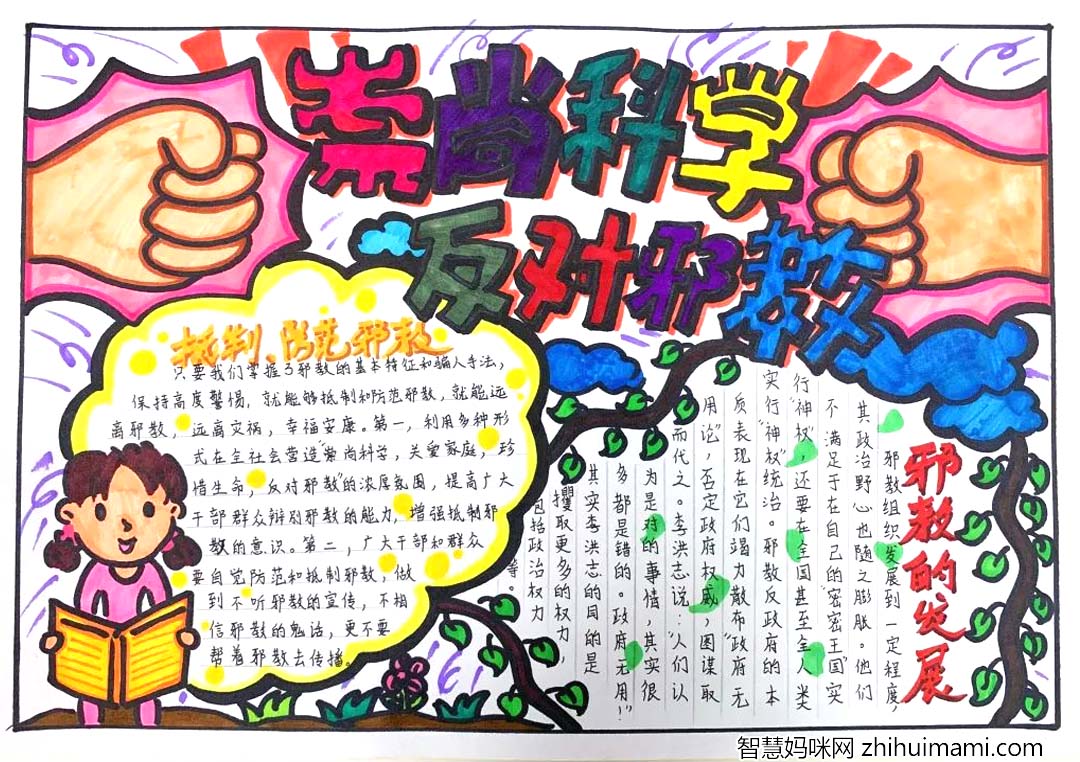 崇尚科学
反对邪教
抵制、防范邪教
只要我们掌握了邪教的基本特征和骗人手法，
保持高度警惕，就能够抵制和防范邪教，就能远
离邪教，远离灾祸，幸福安康。第一，利用多种形
式在全社会营造"崇尚科学，关爱家庭，珍
惜生命，反对邪教"的浓厚氛围，提高广大
干部群众辩别邪教的能力，增强抵制邪
教的意识。第二，广大干部和群众
要自觉防范和抵制邪教，做
到不听邪教的宣传，不相
信邪教的鬼话，更不要
帮着邪教去传播。
邪教的发展
邪教组织发展到一定程度，
其政治野心也随之膨胀。他们
不满足于在自己的"密密王国"实
行"神权"，还要在全国甚至全人类
实行"神权"统治。邪教反政府的本
质表现在它们竭力散布"政府无
用论"，否定政府权威，图谋取
而代之。李洪志说："人们认
为是对的事情，其实很
多都是错的。政府无用！"
其实李洪志的目的是
攫取更多的权力，
包括政治权力
等。
智慧妈咪网 zhihuimami.com